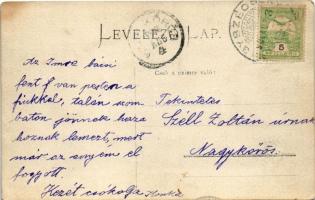 LEVELEZŐ-LAP.
Csak a czímzés való!
Az Imre bácsi
fent van pesten a
fiúkkal, talán szom
baton jönnek haza
hoznak lemert, mert
már az enyém el
fogyott.
Kezét csókolja
Tekintetes
Széll Zoltán úrnak
Nagykőrös.